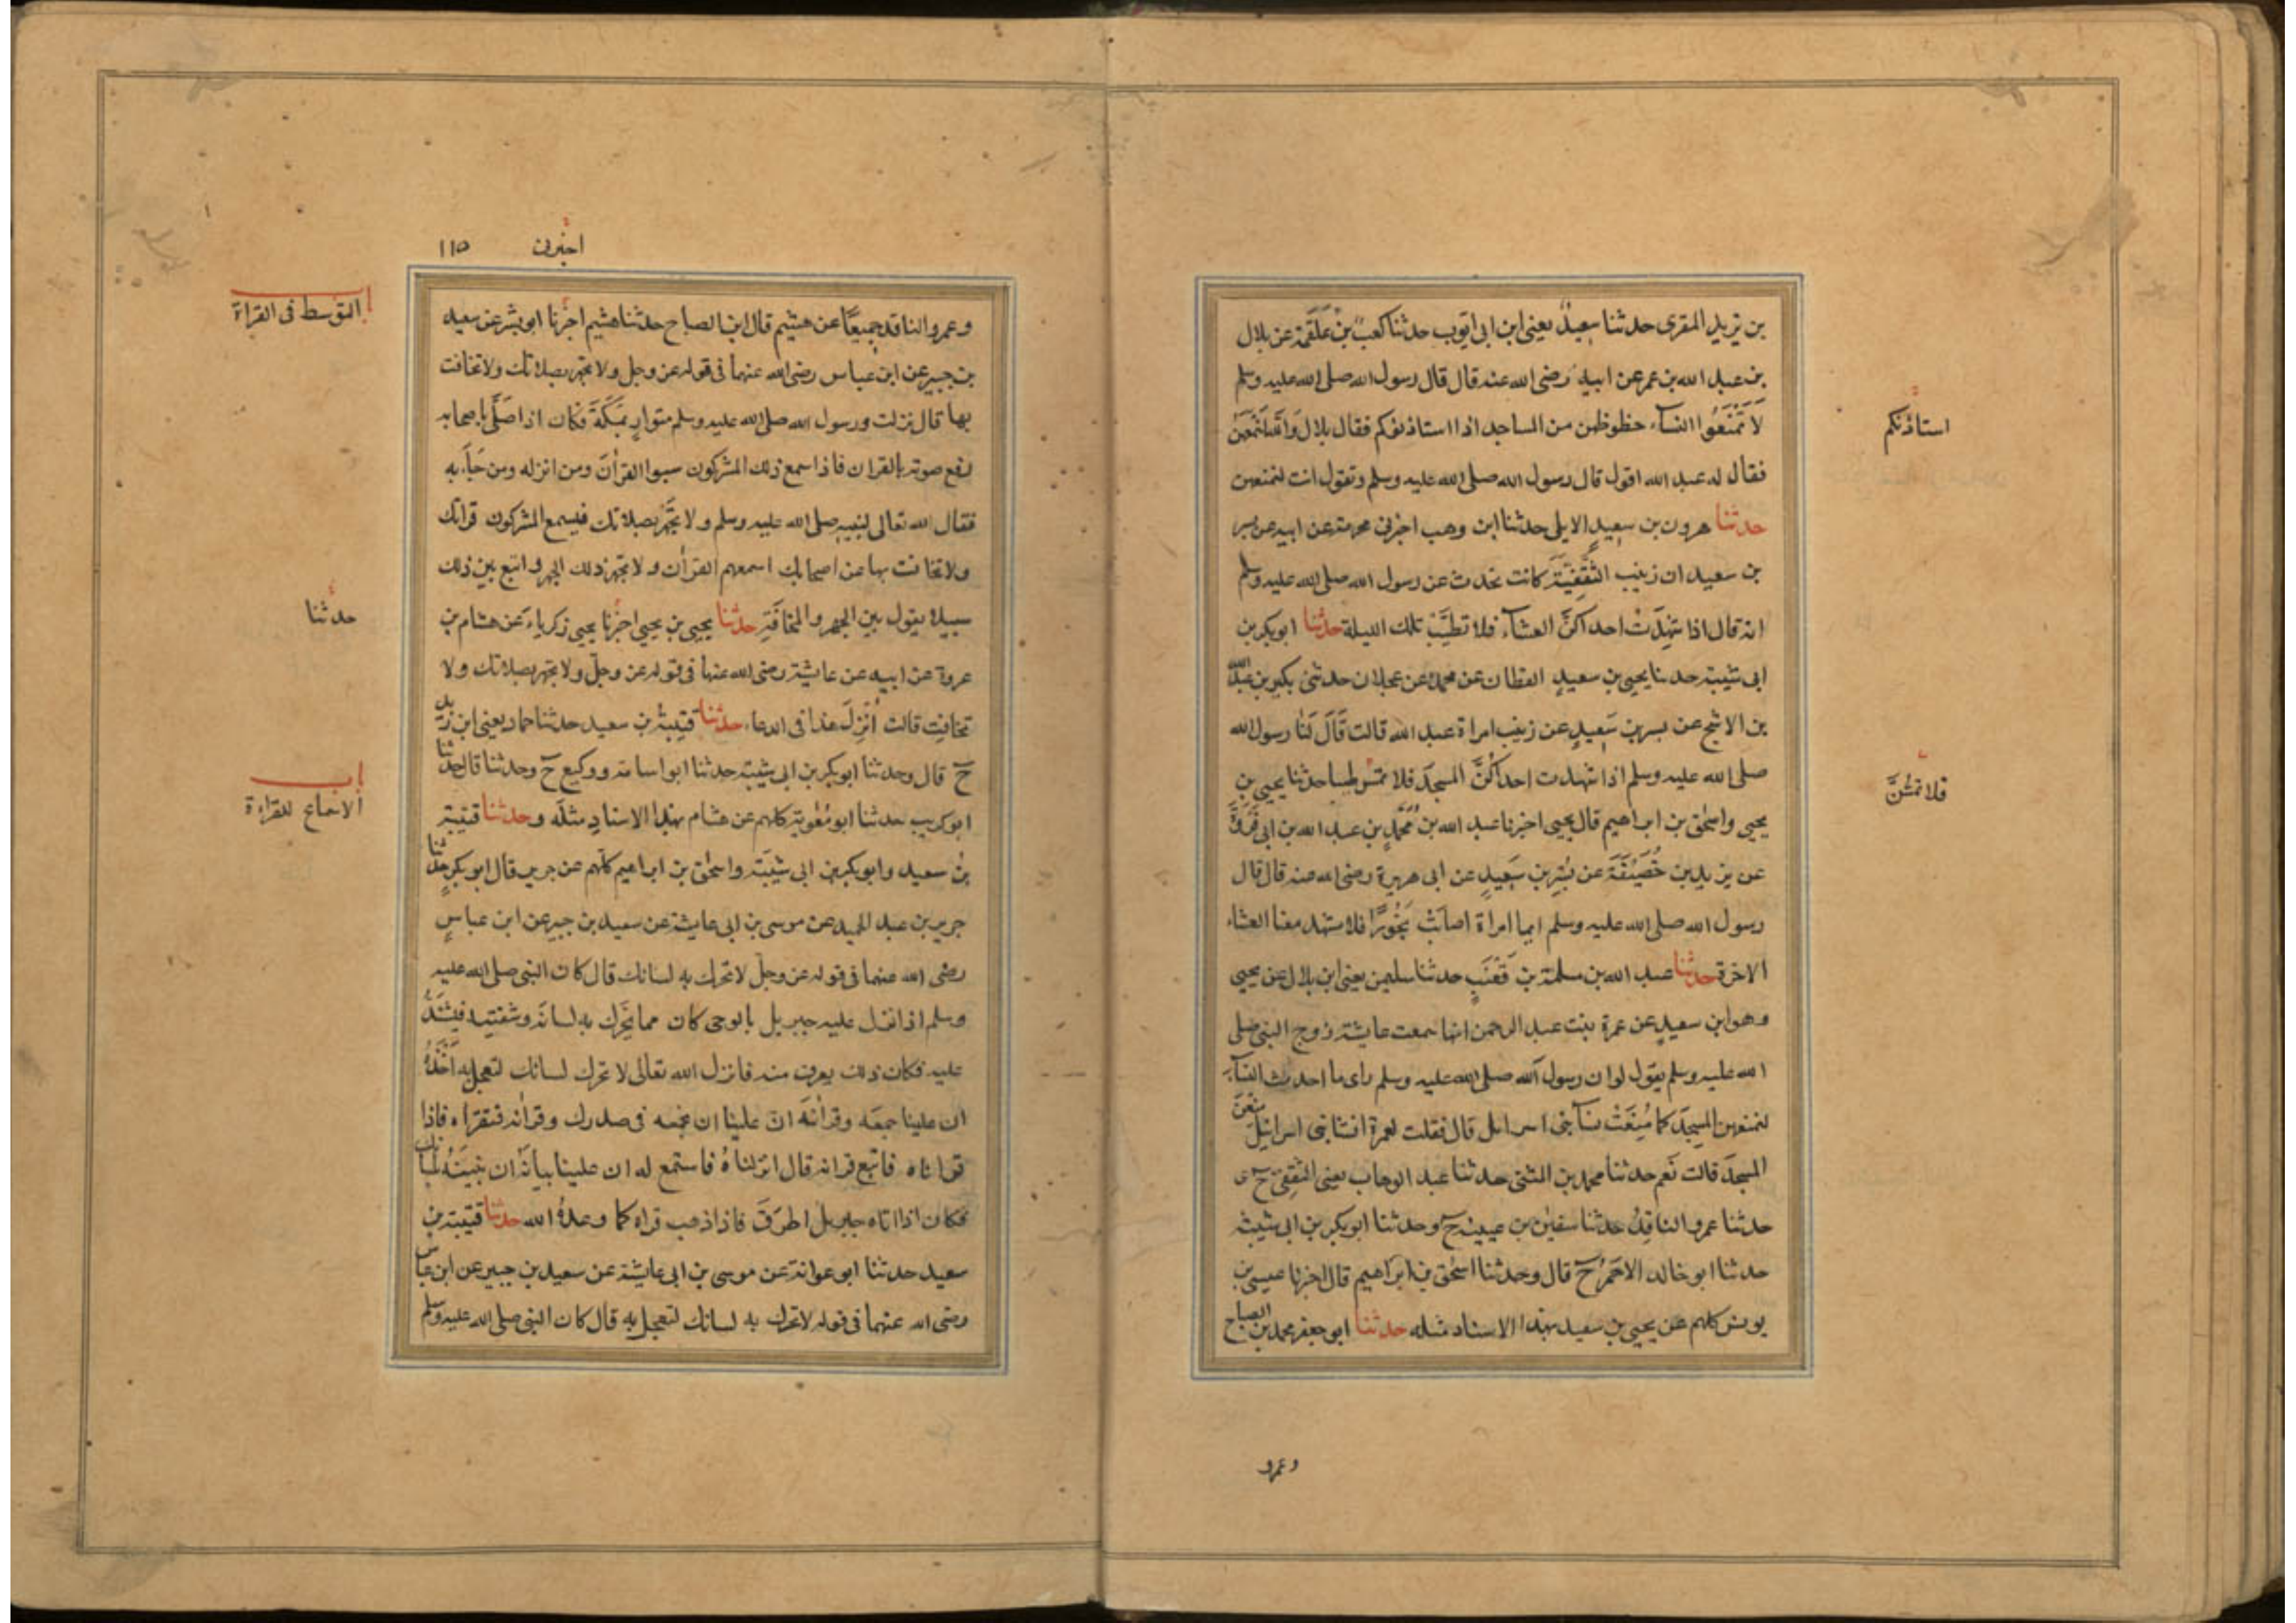 بن يزيد المقرى حدثنا سعيدٌ يعنى ابن ابى ايوب حدثنا كعبُ بنُ عَلقَمة عن بلال
بن عبد الله بن عمر عن ابيه رضى الله عنه قال قال رسول الله صلى الله عليه وسلم
لا تَمْنَعُوا النسآء حظوظهن من المساجد اذا استاذنوكم فقال بلال والله لنَمْنَعَهُنّ
استاذنكم
فقال له عبد الله اقول قال رسول الله صلى الله عليه وسلم وتقول انت لنمنعهن
حدثنا هرون بن سعيدٍ الايلى حدثنا ابن وهب اخبرنى مخرمة عن ابيه عن بسر
بن سعيد ان زينب الثَّقَفِيَّةَ كانت تحدث عن رسول الله صلى الله عليه وسلم
انه قال اذا شهِدَتْ احداكنَّ العشآء فلا تطيَّب تلك الليلة حدثنا ابو بكر بن
ابى شيبة حدثنا يحيى بن سعيدٍ القطان عن محمد بن عجلان حدثنى بكير بن عبد الله
بن الاشج عن بسر بن سَعِيدٍ عن زينب امراة عبد الله قالت قَالَ لَنا رسول الله
صلى الله عليه وسلم اذا شهدت احداكُنَّ المسجدَ فلا تمس طيبا حدثنا يحيى بن
فلا تمسَّنَّ
يحيى واسحٰق بن ابراهيم قال يحيى اخبرنا عبد الله بن مُحَمَّدٍ بن عبد الله بن ابى فَرْوَةَ
عن يزيد بن خُصَيْفَةَ عن بُسْرِ بن سَعِيدٍ عن ابى هريرة رضى الله عنه قال قال
رسول الله صلى الله عليه وسلم ايما امراة اصابَتْ بَخُورًا فلا تشهد معنا العشاء
الاخرة حدثنا عبد الله بن مسلمة بن قَعْنَبٍ حدثنا سليمن يعنى ابن بلال عن يحيى
وهو ابن سعيدٍ عن عمرة بنت عبد الرحمن انها سمعت عايشة زوج النبى صلى
الله عليه وسلم يقول لو ان رسول الله صلى الله عليه وسلم راى ما احدث النسآء
لمنعهن المسجدَ كما مُنِعَتْ نسآ بنى اسرايل قال فقلت لعمرة انسا بنى اسرائيل مُنِعْنَ
المسجدَ قالت نَعم حدثنا محمد بن المثنى حدثنا عبد الوهاب يعنى الثقفِىَّ ح و
حدثنا عمرو الناقِدُ حدثنا سفين بن عيينه ح وحدثنا ابو بكر بن ابى شيبة
حدثنا ابو خالد الاحمَرُ ح قال وحدثنا اسحٰق بن ابراهيم قال اخبرنا عيسى بن
يونس كلهم عن يحيى بن سعيد بهذا الاسناد مثله حدثنا ابو جعفر محمد بن الصباح
وعمرو
اخبرنى
١١٥
باب التوسط فى القراة
وعمرو الناقد جميعًا عن هشيم قال ابن الصباح حدثنا هشيم اخبرنا ابو بشر عن سعيد
بن جبير عن ابن عباس رضى الله عنهما فى قوله عز وجل ولا تجهر بصلاتك ولا تخافت
بها قال نزلت ورسول الله صلى الله عليه وسلم متوارٍ بمَكَةَ فكان اذا صَلَّى باصحابه
رفع صوته بالقران فاذا سمع ذلك المشركون سبوا القرانَ ومن انزله ومن جَآء به
فقال الله تعالى لنبيه صلى الله عليه وسلم ولا تَجْهَرْ بصلاتك فيسمع المشركون قراتك
ولا تخافت بها عن اصحابك اسمعهم القران ولا تجهر ذلك الجهر وابتغ بين ذلك
سبيلا يقول بين الجهر والمخافَتةِ حدثنا يحيى بن يحيى اخبرنا يحيى زكرياء عن هشام بن
حدثنا
عروة عن ابيه عن عايشة رضى الله عنها فى قوله عز وجلّ ولا تجهر بصلاتك ولا
تخافِت قالت اُنْزِلَ هذا فى الدعاء حدثنا قتيبة بن سعيد حدثنا حماد يعنى ابن زيد
ح قال وحدثنا ابو بكر بن ابى شيبة حدثنا ابو اسامة ووكيع ح وحدثنا قال حدثنا
باب الاستماع للقراءة
ابو كريب حدثنا ابو مُعٰوية كلهم عن هشام بهذا الاسنادِ مثلَه وحدثنا قتيبة
بن سعيد وابو بكر بن ابى شيبَة واسحٰق بن ابراهيم كلّهم عن جرير قال ابو بكرٍ حدثنا
جرير بن عبد الحميد عن موسى بن ابى عايشة عن سعيد بن جبير عن ابن عباسٍ
رضى الله عنهما فى قوله عز وجلّ لا تحرك به لسانك قال كان النبى صلى الله عليه
وسلم اذا نزل عليه جبريل بالوحى كان مما يحَرِّك به لسانَه وشفتيه فيشتَدُّ
عليه فكان ذلك يعرف منه فانزل الله تعالى لا تحرك لسانك لتعجل به اَخْذَهُ
ان علينا جمعَه وقرانَه انّ علينا ان نجمعه فى صدرك وقرانه فتقراه فاذا
قراناه فاتبع قرانه قال انزلناهُ فاستمع له ان علينا بيانَه ان نبيّنَهُ بلسانك
فكان اذا اتاه جبريل اطرَقَ فاذا ذهب قراه كما وعدَهُ الله حدثنا قتيبة بن
سعيد حدثنا ابو عوانة عن موسى بن ابى عايشة عن سعيد بن جبير عن ابن عباس
رضى الله عنهما فى قوله لا تحرك به لسانك لتعجل به قال كان النبى صلى الله عليه وسلم